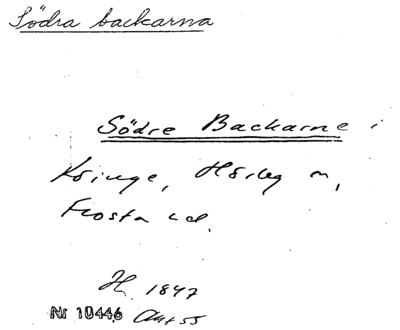 Södra backarna
Södre Backarne i
Kringe, Hörleg m,
Frosta hd.
H. 1847
Nr 10446 Akt 55